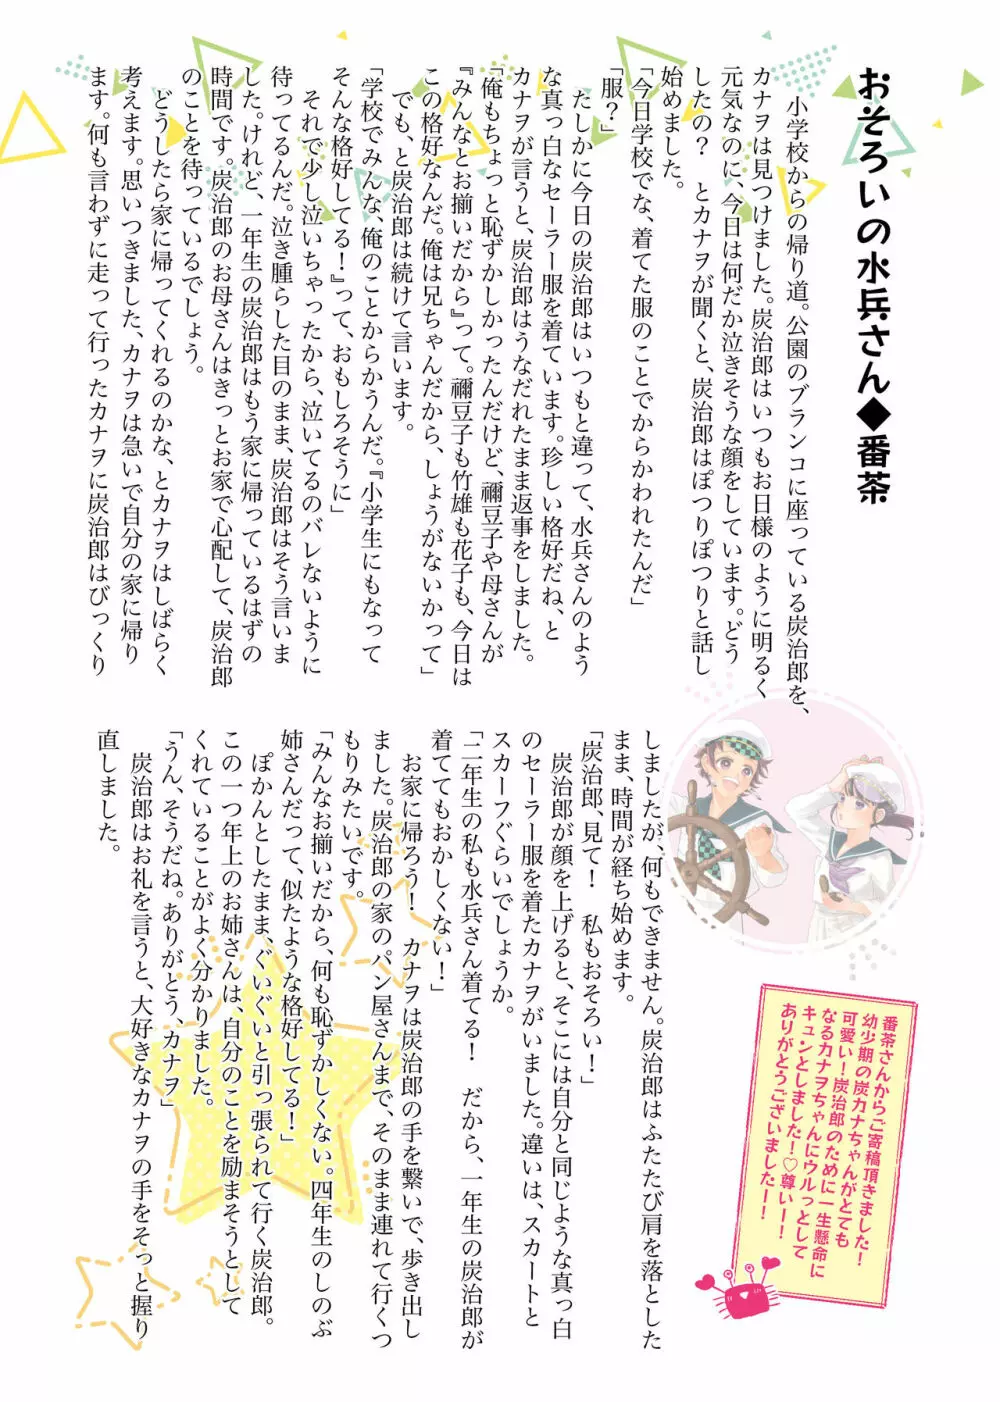 おそろいの水兵さん◆番茶
小学校からの帰り道。公園のブランコに座っている炭治郎を、
カナヲは見つけました。炭治郎はいつもお日様のように明るく
元気なのに、今日は何だか泣きそうな顔をしています。どう
したの？　とカナヲが聞くと、炭治郎はぽつりぽつりと話し
始めました。
「今日学校でな、着てた服のことでからかわれたんだ」
「服？」
たしかに今日の炭治郎はいつもと違って、水兵さんのよう
な真っ白なセーラー服を着ています。珍しい格好だね、と
カナヲが言うと、炭治郎はうなだれたまま返事をしました。
「俺もちょっと恥ずかしかったんだけど、禰豆子や母さんが
『みんなとお揃いだから』って。禰豆子も竹雄も花子も、今日は
この格好なんだ。俺は兄ちゃんだから、しょうがないかって」
でも、と炭治郎は続けて言います。
「学校でみんな、俺のことからかうんだ。『小学生にもなって
そんな格好してる！』って、おもしろそうに」
それで少し泣いちゃったから、泣いてるのバレないように
待ってるんだ。泣き腫らした目のまま、炭治郎はそう言いま
した。けれど、一年生の炭治郎はもう家に帰っているはずの
時間です。炭治郎のお母さんはきっとお家で心配して、炭治郎
のことを待っているでしょう。
どうしたら家に帰ってくれるのかな、とカナヲはしばらく
考えます。思いつきました、カナヲは急いで自分の家に帰り
ます。何も言わずに走って行ったカナヲに炭治郎はびっくり
しましたが、何もできません。炭治郎はふたたび肩を落とした
まま、時間が経ち始めます。
「炭治郎、見て！　私もおそろい！」
炭治郎が顔を上げると、そこには自分と同じような真っ白
のセーラー服を着たカナヲがいました。違いは、スカートと
スカーフぐらいでしょうか。
「二年生の私も水兵さん着てる！　だから、一年生の炭治郎が
着ててもおかしくない！」
お家に帰ろう！　カナヲは炭治郎の手を繋いで、歩き出し
ました。炭治郎の家のパン屋さんまで、そのまま連れて行くつ
もりみたいです。
「みんなお揃いだから、何も恥ずかしくない。四年生のしのぶ
姉さんだって、似たような格好してる！」
ぽかんとしたまま、ぐいぐいと引っ張られて行く炭治郎。
この一つ年上のお姉さんは、自分のことを励まそうとして
くれていることがよく分かりました。
「うん、そうだね。ありがとう、カナヲ」
炭治郎はお礼を言うと、大好きなカナヲの手をそっと握り
直しました。
番茶さんからご寄稿頂きました！
幼少期の炭カナちゃんがとても
可愛い！炭治郎のために一生懸命に
なるカナヲちゃんにウルっとして
キュンとしました！♡尊いー！
ありがとうございました！！